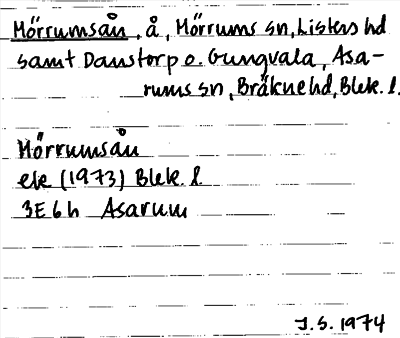 Mörrumsån, å, Mörrums sn, Listers hd
samt Danstorp o. Gungvala, Asa-
rums sn, Bräkne hd, Blek. l.
Mörrumsån
ek (1973) Blek. l.
3E 6h Asarum
J.S. 1974